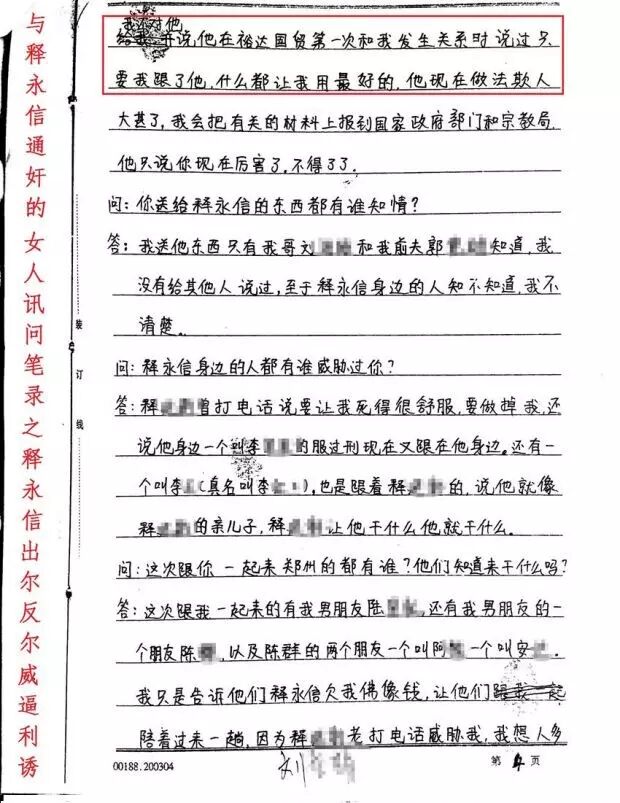 与释永信通奸的女人讯问笔录之释永信出尔反尔威逼利诱
装订线
我不对他
给我 并说他在裕达国贸第一次和我发生关系时说过只
要我跟了他,什么都让我用最好的,他现在做法欺人
太甚了,我会把有关的材料上报到国家政府部门和宗教局.
他只说你现在厉害了,不得了了.
问:你送给释永信的东西都有谁知情?
答:我送他东西只有我哥刘 和我前夫郭 知道,我
没有给其他人说过,至于释永信身边的人知不知道,我不
清楚。
问:释永信身边的人都有谁威胁过你?
答:释 曾打电话说要让我死得很舒服,要做掉我,还
说他身边一个叫李 的服过刑现在又跟在他身边。还有一
个叫李 (真名叫李 ),也是跟着释 的,说他就像
释 的亲儿子,释 让他干什么他就干什么。
问:这次跟你一起来郑州的都有谁?他们知道来干什么吗?
答:这次跟我一起来的有我男朋友陆 ,还有我男朋友的一
个朋友陈 ,以及陈群的两个朋友一个叫阿 一个叫安 .
我只是告诉他们释永信欠我佛像钱,让他们跟我一起
陪着过来一趟,因为释 老打电话威胁我,我想人多
00188.200304
刘
第 4 页